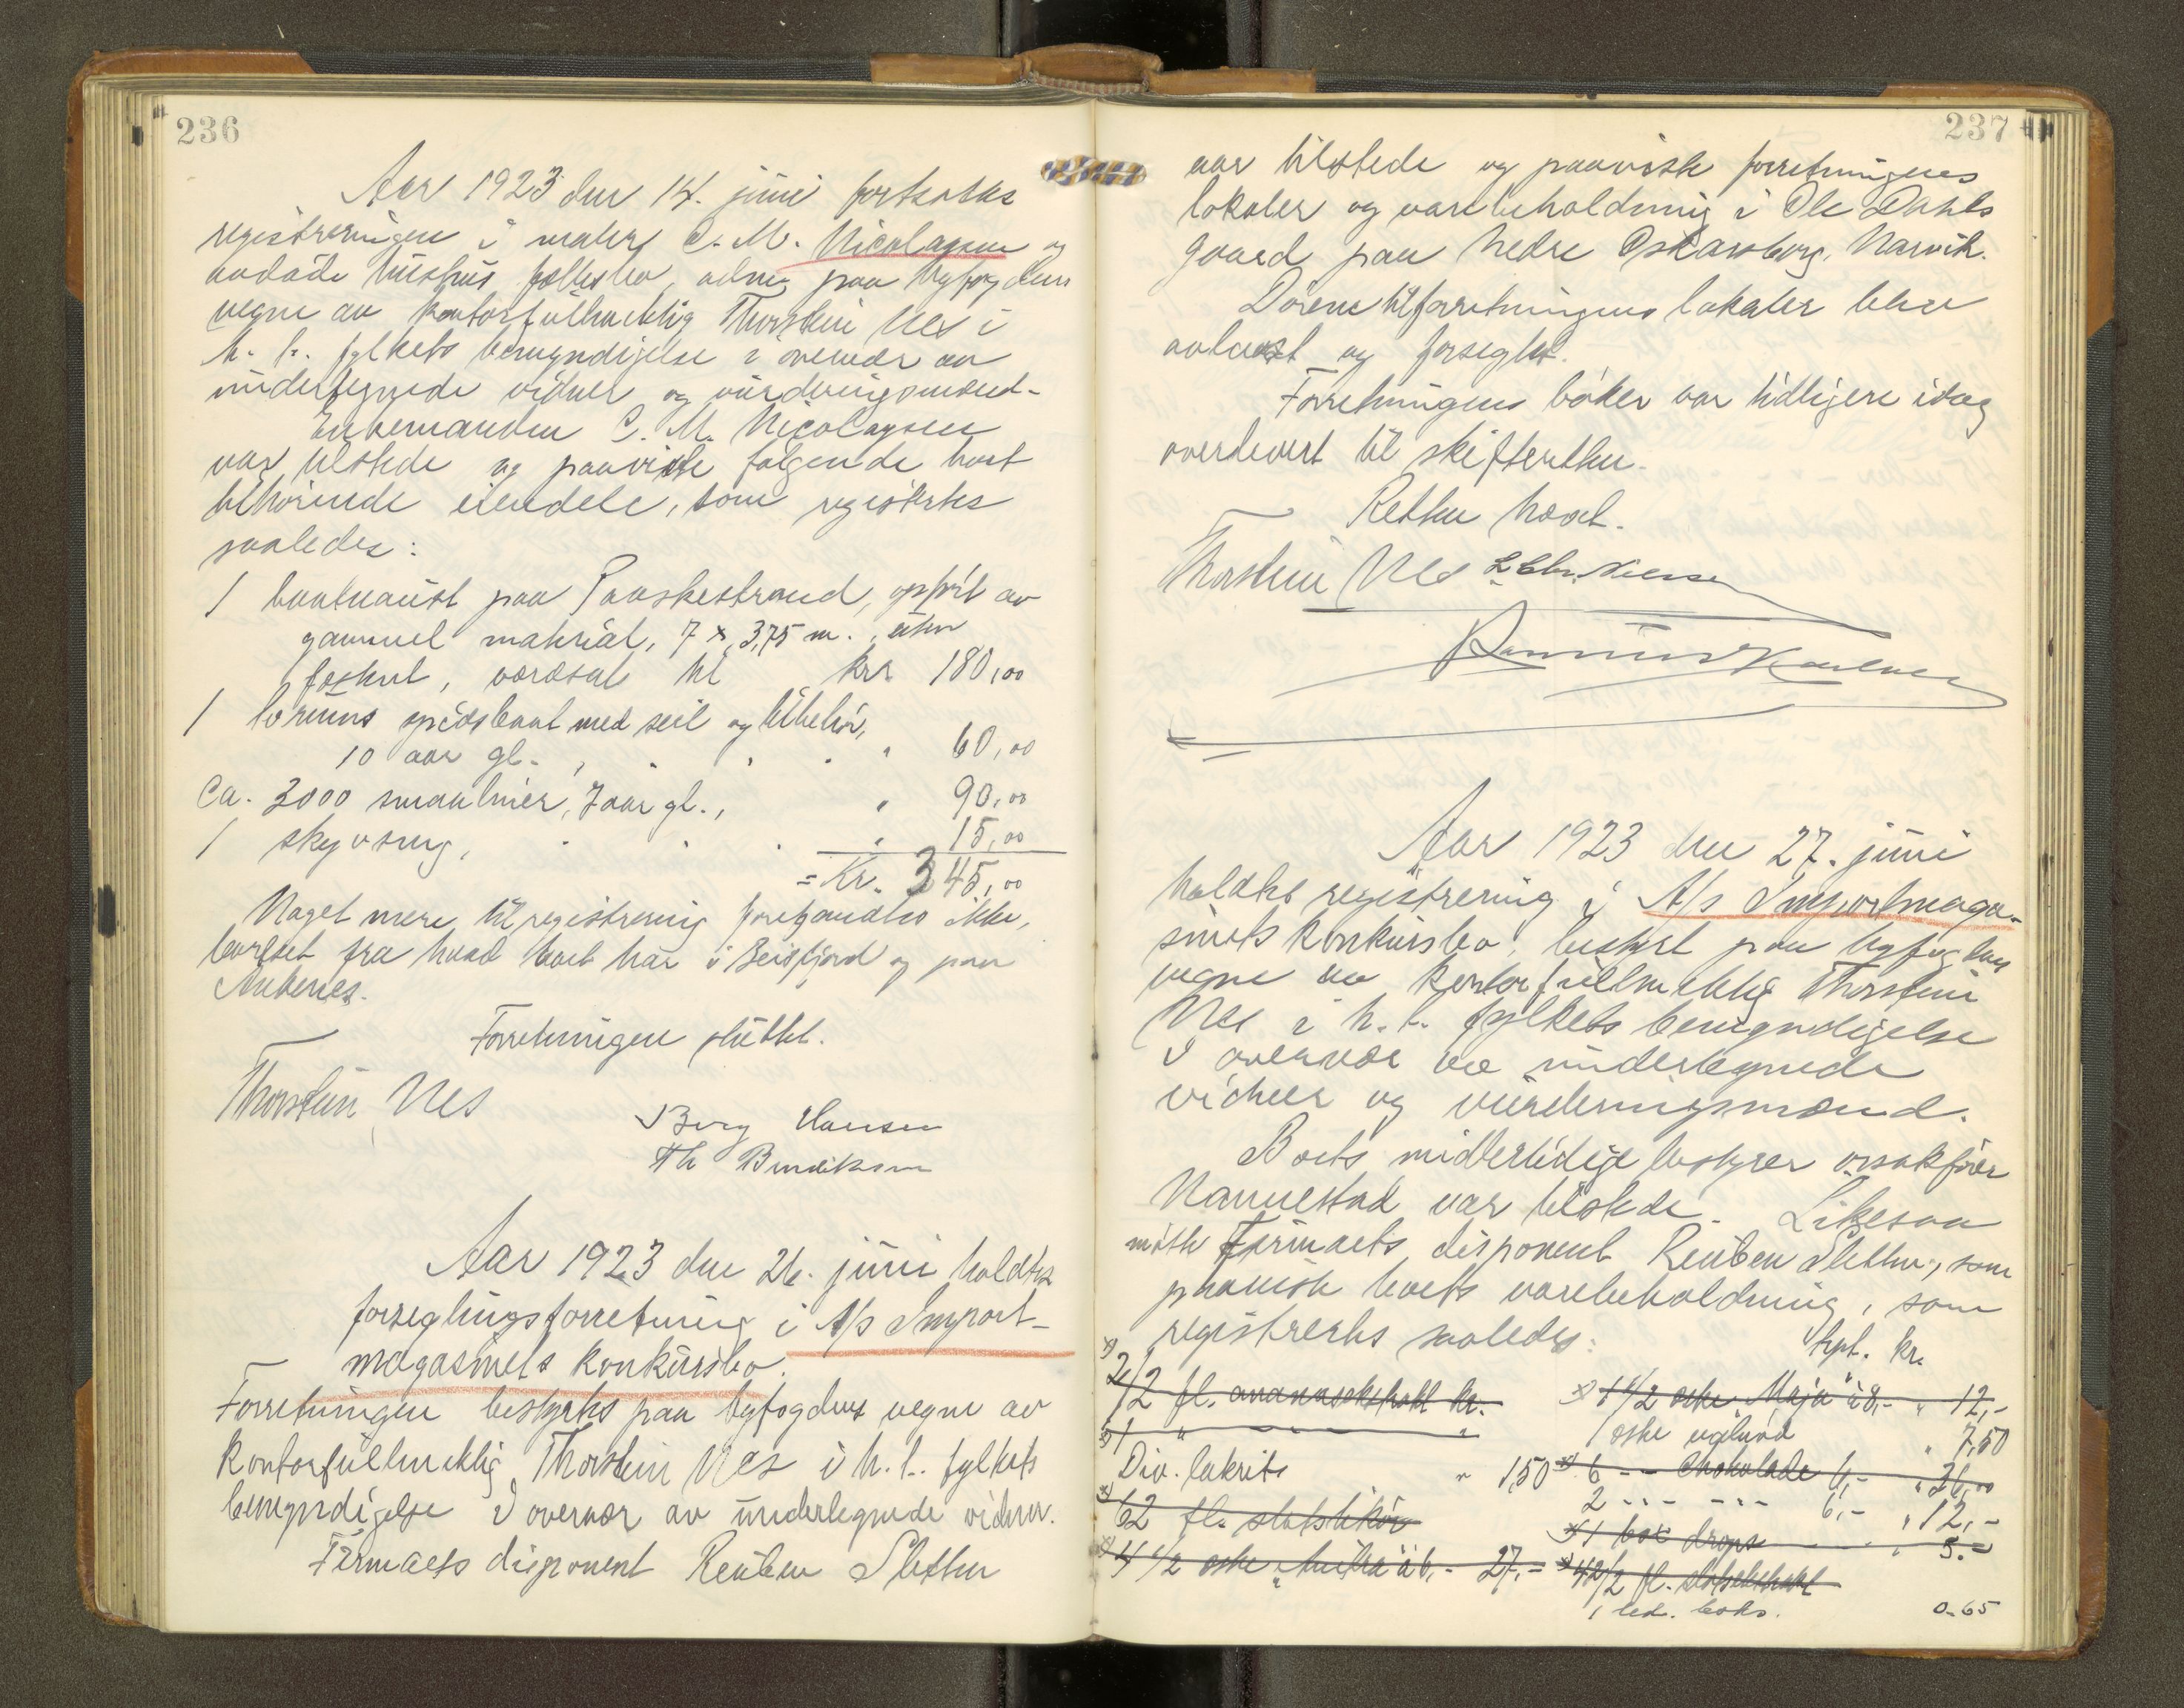 236
Aar 1923 den 14. juni fortsattes
registreringen i maler C. M. Nicolaysen og
avdøde hustrus fællesbo, adm. paa byfogdens
vegne av kontorfuldmektig Thorstein Nes i
h. t. fylkets bemyndigelse i overvær av
undertegnede vidner og vurderingsmænd.
Enkemanden C. M. Nicolaysen
var tilstede og paaviste følgende boet
tilhørende eiendele, som registrertes
saaledes:
1 baatnaust paa Taaskestrand, opført av
gammel material, 7 x 3,75 m., uten
fæstuet, værdsat til kr. 180,00
1 4 rums spidsbaat med seil og tilbehør,
10 aar gl., " 60,00
Ca. 3000 smaaliner, 7 aar gl., " 90,00
1 skyvsing, " 15,00
= Kr. 345,00
Noget mere til registrering forefandtes ikke,
bortset fra hvad boet har i Beisfjord og paa
Ankenes.
Forretningen sluttet.
Thorstein Nes
Berg Hansen
Th Bendiksen
Aar 1923 den 26. juni holdtes
forseglingsforretning i A/s Import-
magasinets konkursbo.
Forretningen bestyrtes paa byfogdens vegne av
kontorfullmektig Thorstein Nes i h. t. fylkets
bemyndigelse i overvær av undertegnede vidner.
Firmaets disponent Reuben Sletten
237
var tilstede og paaviste forretningens
lokaler og varebeholdning i Ole Dahls
gaard paa nedre Oskarsborg, Narvik.
Dørene til forretningens lokaler blev
avlaast og forseglet.
Forretningens bøker var tidligere idag
overlevert til skifteretten.
Retten hævet.
Thorstein Nes L. Chr. Nilsen
Aar 1923 den 27. juni
holdtes registrering i A/s Importmaga-
sinets konkursbo, bestyrt paa byfogdens
vegne av kontorfullmektig Thorstein
Nes i h. t. fylkets bemyndigelse
i overvær av undertegnede
vidner og vurderingsmænd.
Boets midlertidige bestyrer orsakfører
Nannestad var tilstede. Likesaa
møtte Firmaets disponent Reuben Sletten, som
paaviste boets varebeholdning, som
registrertes saaledes:
Tept. kr.
x) 2/2 fl. ananasekstrakt kr.
x) 1 " - - "
Div. lakrits " 1,50
x) 62 fl. slotslikør
x) 4 1/2 eske " " à 6,- 27,-
x) 1 1/2 eske "Maja" à 8,- " 12,-
1 eske uglund " 7,50
x) 6 - - Chokolade 6,- " 36,00
2 - - - - 6,- " 12,-
x) 1 box drops " 5.-
x) 42/2 fl. slotsekstrakt
1 led. boks. 0.65